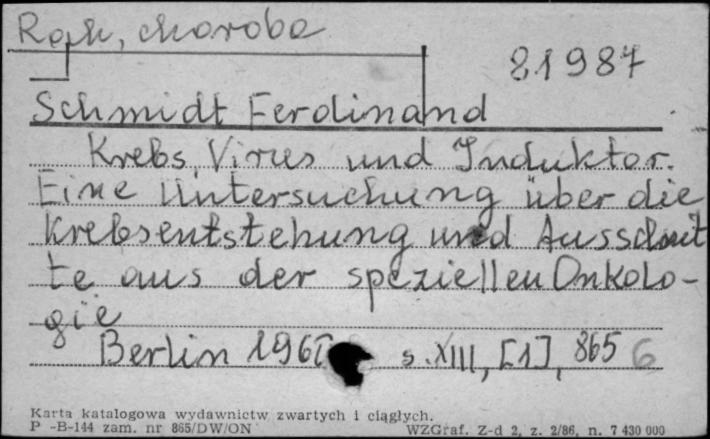 Rak, choroba
81987
Schmidt Ferdinand
Krebs, Virus und Induktor.
Eine Untersuchung über die
Krebsentstehung und Ausschnit
te aus der speziellen Onkolo-
gie
Berlin s. XIII, [1], 865 6
Karta katalogowa wydawnictw zwartych i ciągłych.
P -B-144 zam. nr 865/DW/ON WZGraf. Z-d 2, z. 2/86, n. 7 430 000